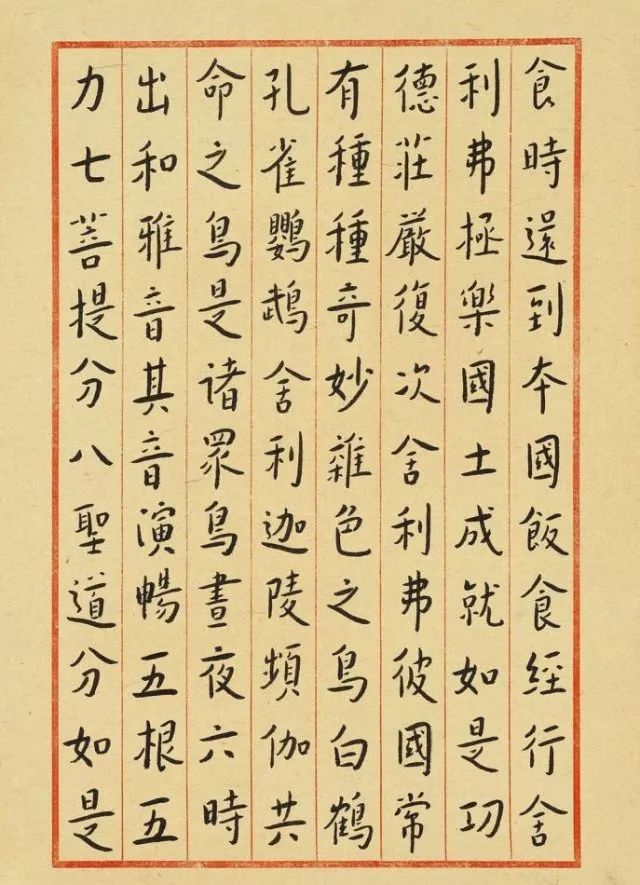 食時還到本國飯食經行舍
利弗極樂國土成就如是功
德莊嚴復次舍利弗彼國常
有種種奇妙雜色之鳥白鶴
孔雀鸚鵡舍利迦陵頻伽共
命之鳥是諸眾鳥晝夜六時
出和雅音其音演暢五根五
力七菩提分八聖道分如是